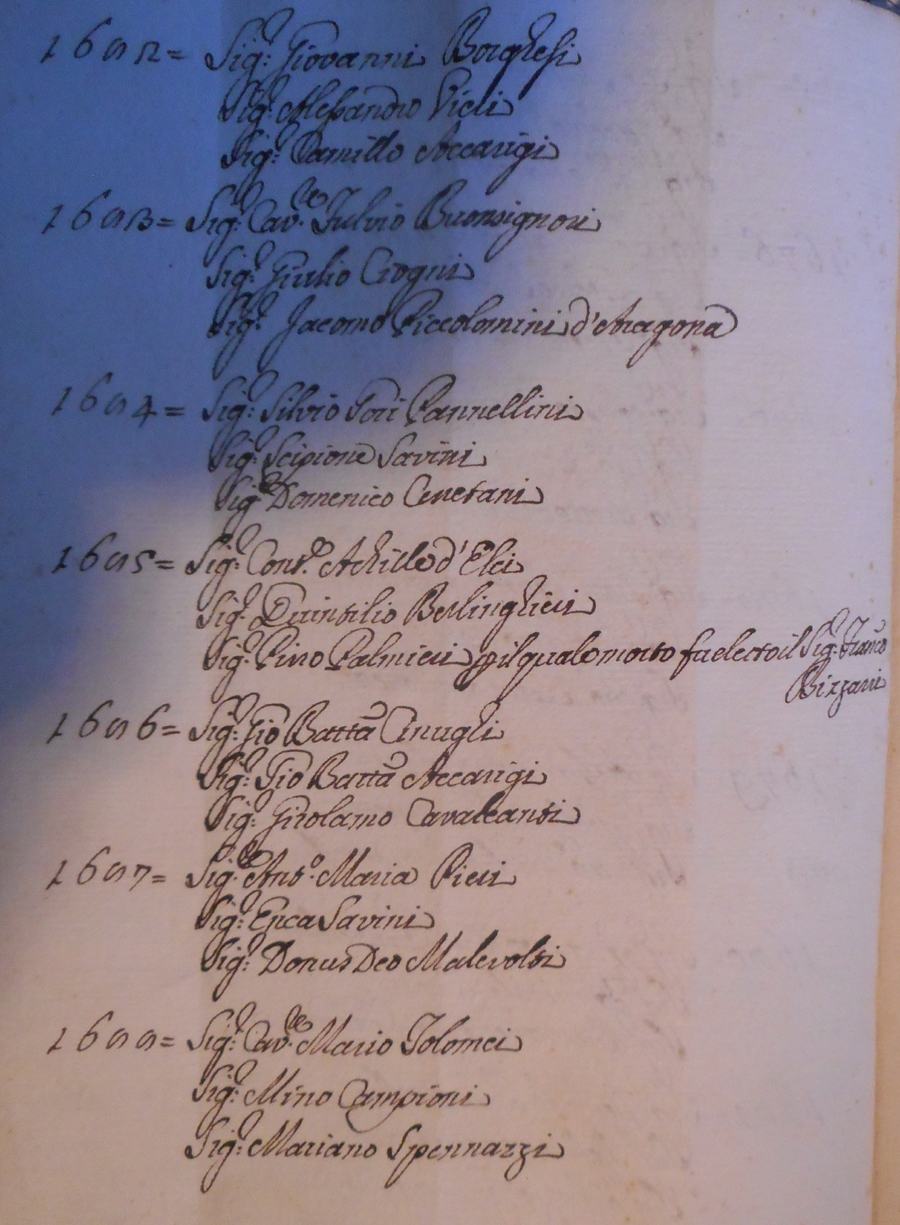 1692= Sig.r Giovanni Borghesi
Sig.r Alessandro Pieri
Sig.r Camillo Accarigi
1693= Sig.r Cav.re Fulvio Buonsignori
Sig.r Giulio Crogni
Sig.r Jacomo Piccolomini d'Aragona
1694= Sig.r Silvio Gori Pannellini
Sig.r Scipione Savini
Sig.r Domenico Cenetani
1695= Sig.r Con.te Achille d'Elci
Sig.r Quintilio Berlinghieri
Sig.r Pino Palmieri p il quale morto fu eletto il Sig.r Franco
Bizzarri
1696= Sig.r Gio Batta Cinughi
Sig.r Gio Batta Accarigi
Sig.r Girolamo Cavalcanti
1697= Sig.r Ant.o Maria Pieri
Sig.r Enea Savini
Sig.r Donus Deo Malevolti
1699= Sig.r Cav.re Mario Tolomei
Sig.r Mino Campioni
Sig.r Mariano Spennazzi